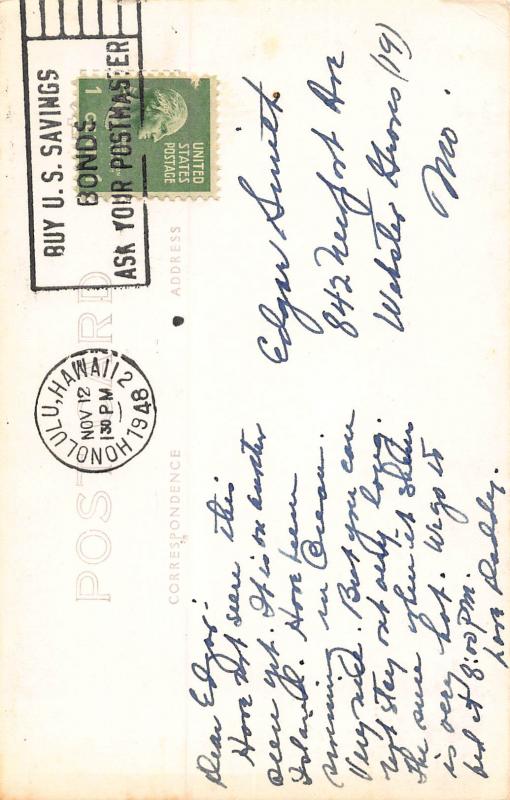 POST CARD
CORRESPONDENCE
ADDRESS
HONOLULU, HAWAII 2
NOV 12
130 PM
1948
BUY U.S. SAVINGS
BONDS
ASK YOUR POSTMASTER
UNITED
STATES
POSTAGE
1
Dear Edgar:
Have not seen this
seen yet. It is on another
Island. Have been
swimming in Ocean.
Very nice. But you can
not stay out very long.
The sun when it shines
is very hot. We go to
bed at 8:00 PM.
Love Daddy.
Edgar Smith
842 Newport Ave
Webster Groves (19)
Mo.